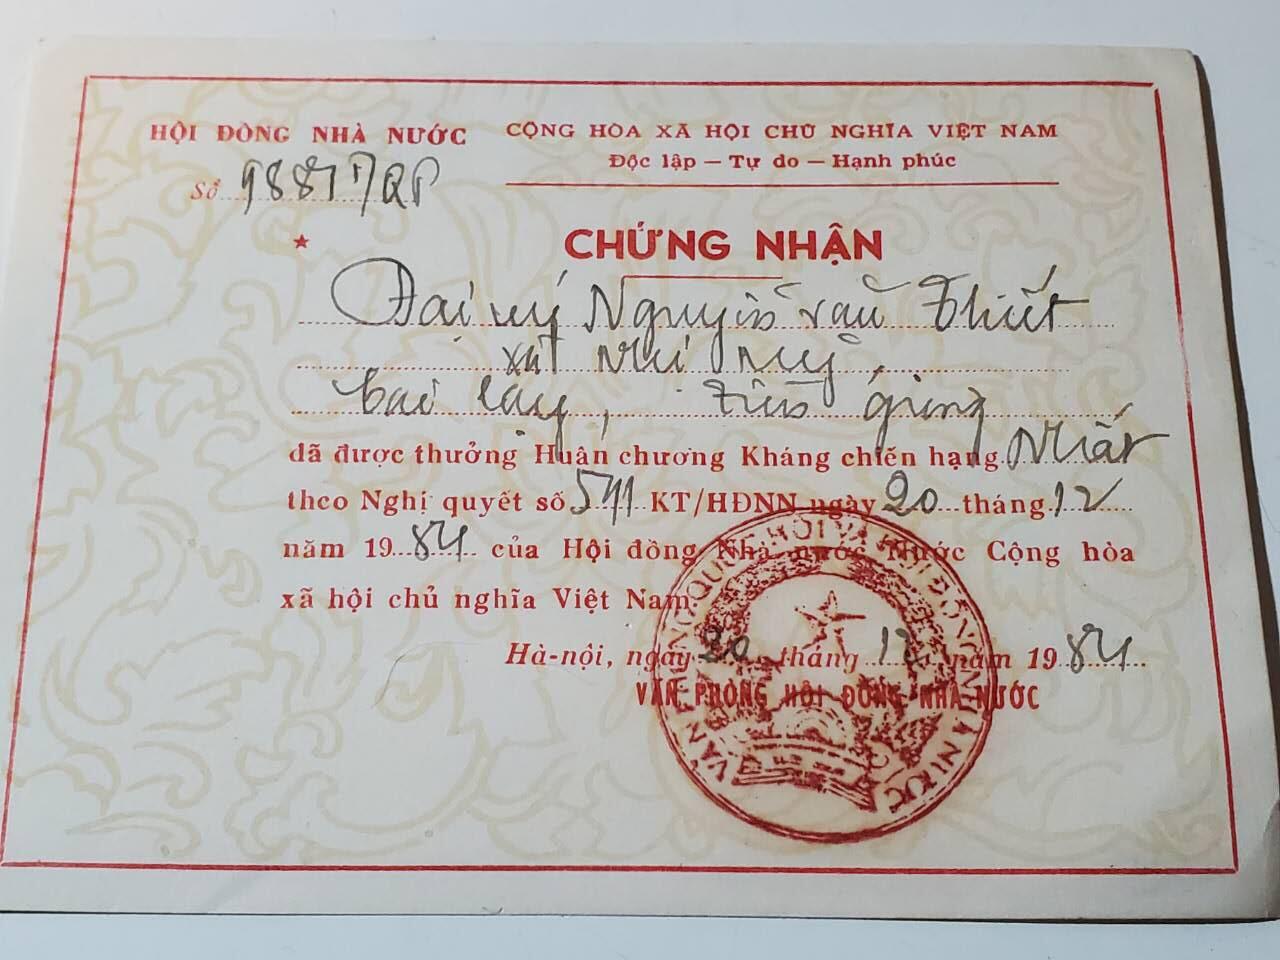 HỘI ĐỒNG NHÀ NƯỚC
Số 98817QP
CỘNG HÒA XÃ HỘI CHỦ NGHĨA VIỆT NAM
Độc lập – Tự do – Hạnh phúc
★
CHỨNG NHẬN
Đại uý Nguyễn văn Thiết
xã Mỹ
Cai lậy, Tiền giang
đã được thưởng Huân chương Kháng chiến hạng Nhất
theo Nghị quyết số KT/HĐNN ngày 20 tháng 12
năm 1984 của Hội đồng Nhà nước Nước Cộng hòa
xã hội chủ nghĩa Việt Nam.
Hà-nội, ngày 20 tháng 12 năm 1984
VĂN PHÒNG HỘI ĐỒNG NHÀ NƯỚC